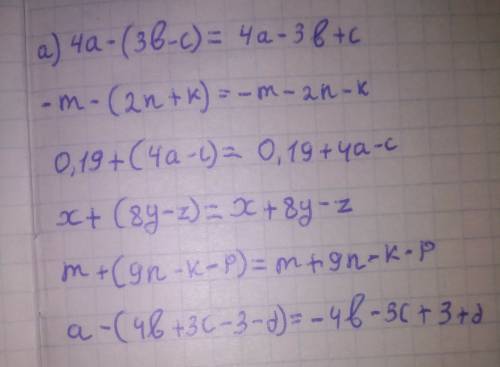 а) 4a-(3в-c)= 4a-3в+c
-m-(2n+k)=-m-2n-k
0,19+(4a-c)= 0,19+4a-c
x+(8y-z)=x+8y-z
m+(9n-k-p)=m+9n-k-p
a-(4в+3c-3-d)=-4в-3c+3+d